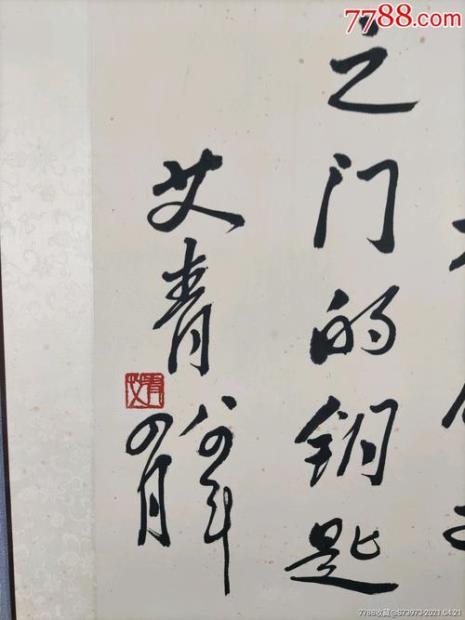 7788.com
之门的钥匙
艾青
八四年
四月
艾青
7788收藏@S73973-2021.04.21